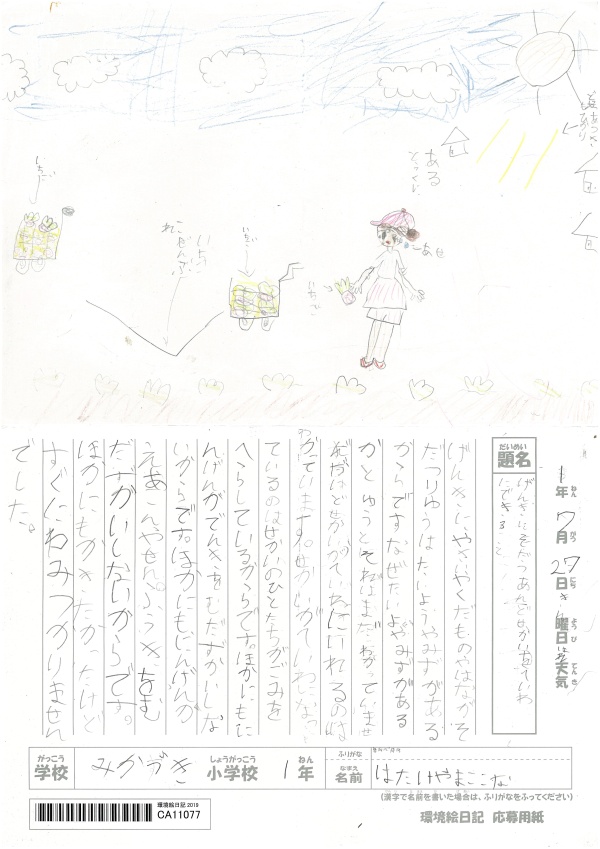 いちご
いちご
あせ
ある
とっくに
いちご
1年 7月 27日 曜日 天気
ねん がつ にち ようび てんき
だいめい
題名
げんきにそだつあれどせかいはせいわ
にできること
げんきにやさいやくだものやはながそ
だつりゆうはたいようやみずがある
からです。なぜたいようやみずがある
かとゆうとそれはまだわかっていませ
わかっています。せかいがていわになっ
ているのはせかいのひとたちがごみを
へらしているからです。ほかにもに
んげんがでんきをむだずかいしな
いからです。ほかにもにんげんが
えあこんやせんぷうきをむ
だずかいしないからです。
ほかにもかきたかったけど
すぐにわみつかりません
でした。
がっこう
学校
みかづき
しょうがっこう
小学校
1年
ねん
ふりがな
なまえ
名前
はたけやまここな
(漢字で名前を書いた場合は、ふりがなをふってください)
環境絵日記 2019
CA11077
環境絵日記 応募用紙